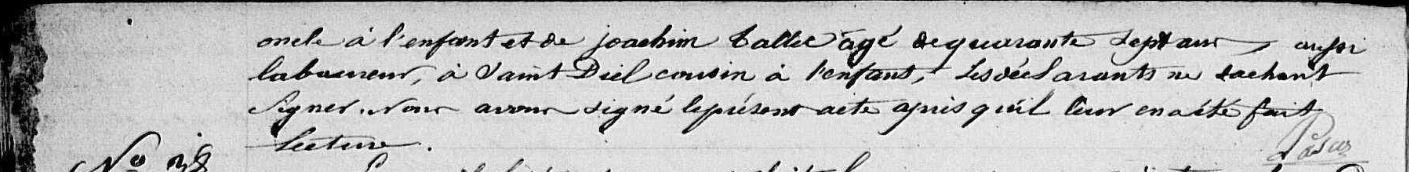 oncle à l'enfant et de joachim Vallée âgé de quarante sept ans, aussi
laboureur, à Saint Priel cousin à l'enfant, Lesdéclarants ne sachant
signer. Nous avons signé leprésent acte après qu'il leur enaété fait
lecture.
No 38